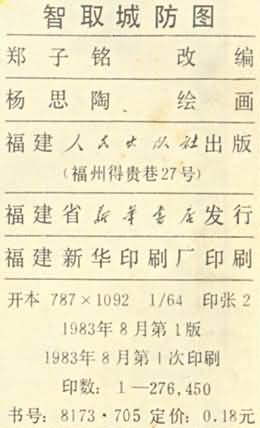 智取城防图
郑子铭 改编
杨思陶 绘画
福建人民出版社出版
(福州得贵巷27号)
福建省新华书店发行
福建新华印刷厂印刷
开本 787×1092 1/64 印张 2
1983年8月第1版
1983年8月第1次印刷
印数: 1—276,450
书号: 8173·705 定价: 0.18元